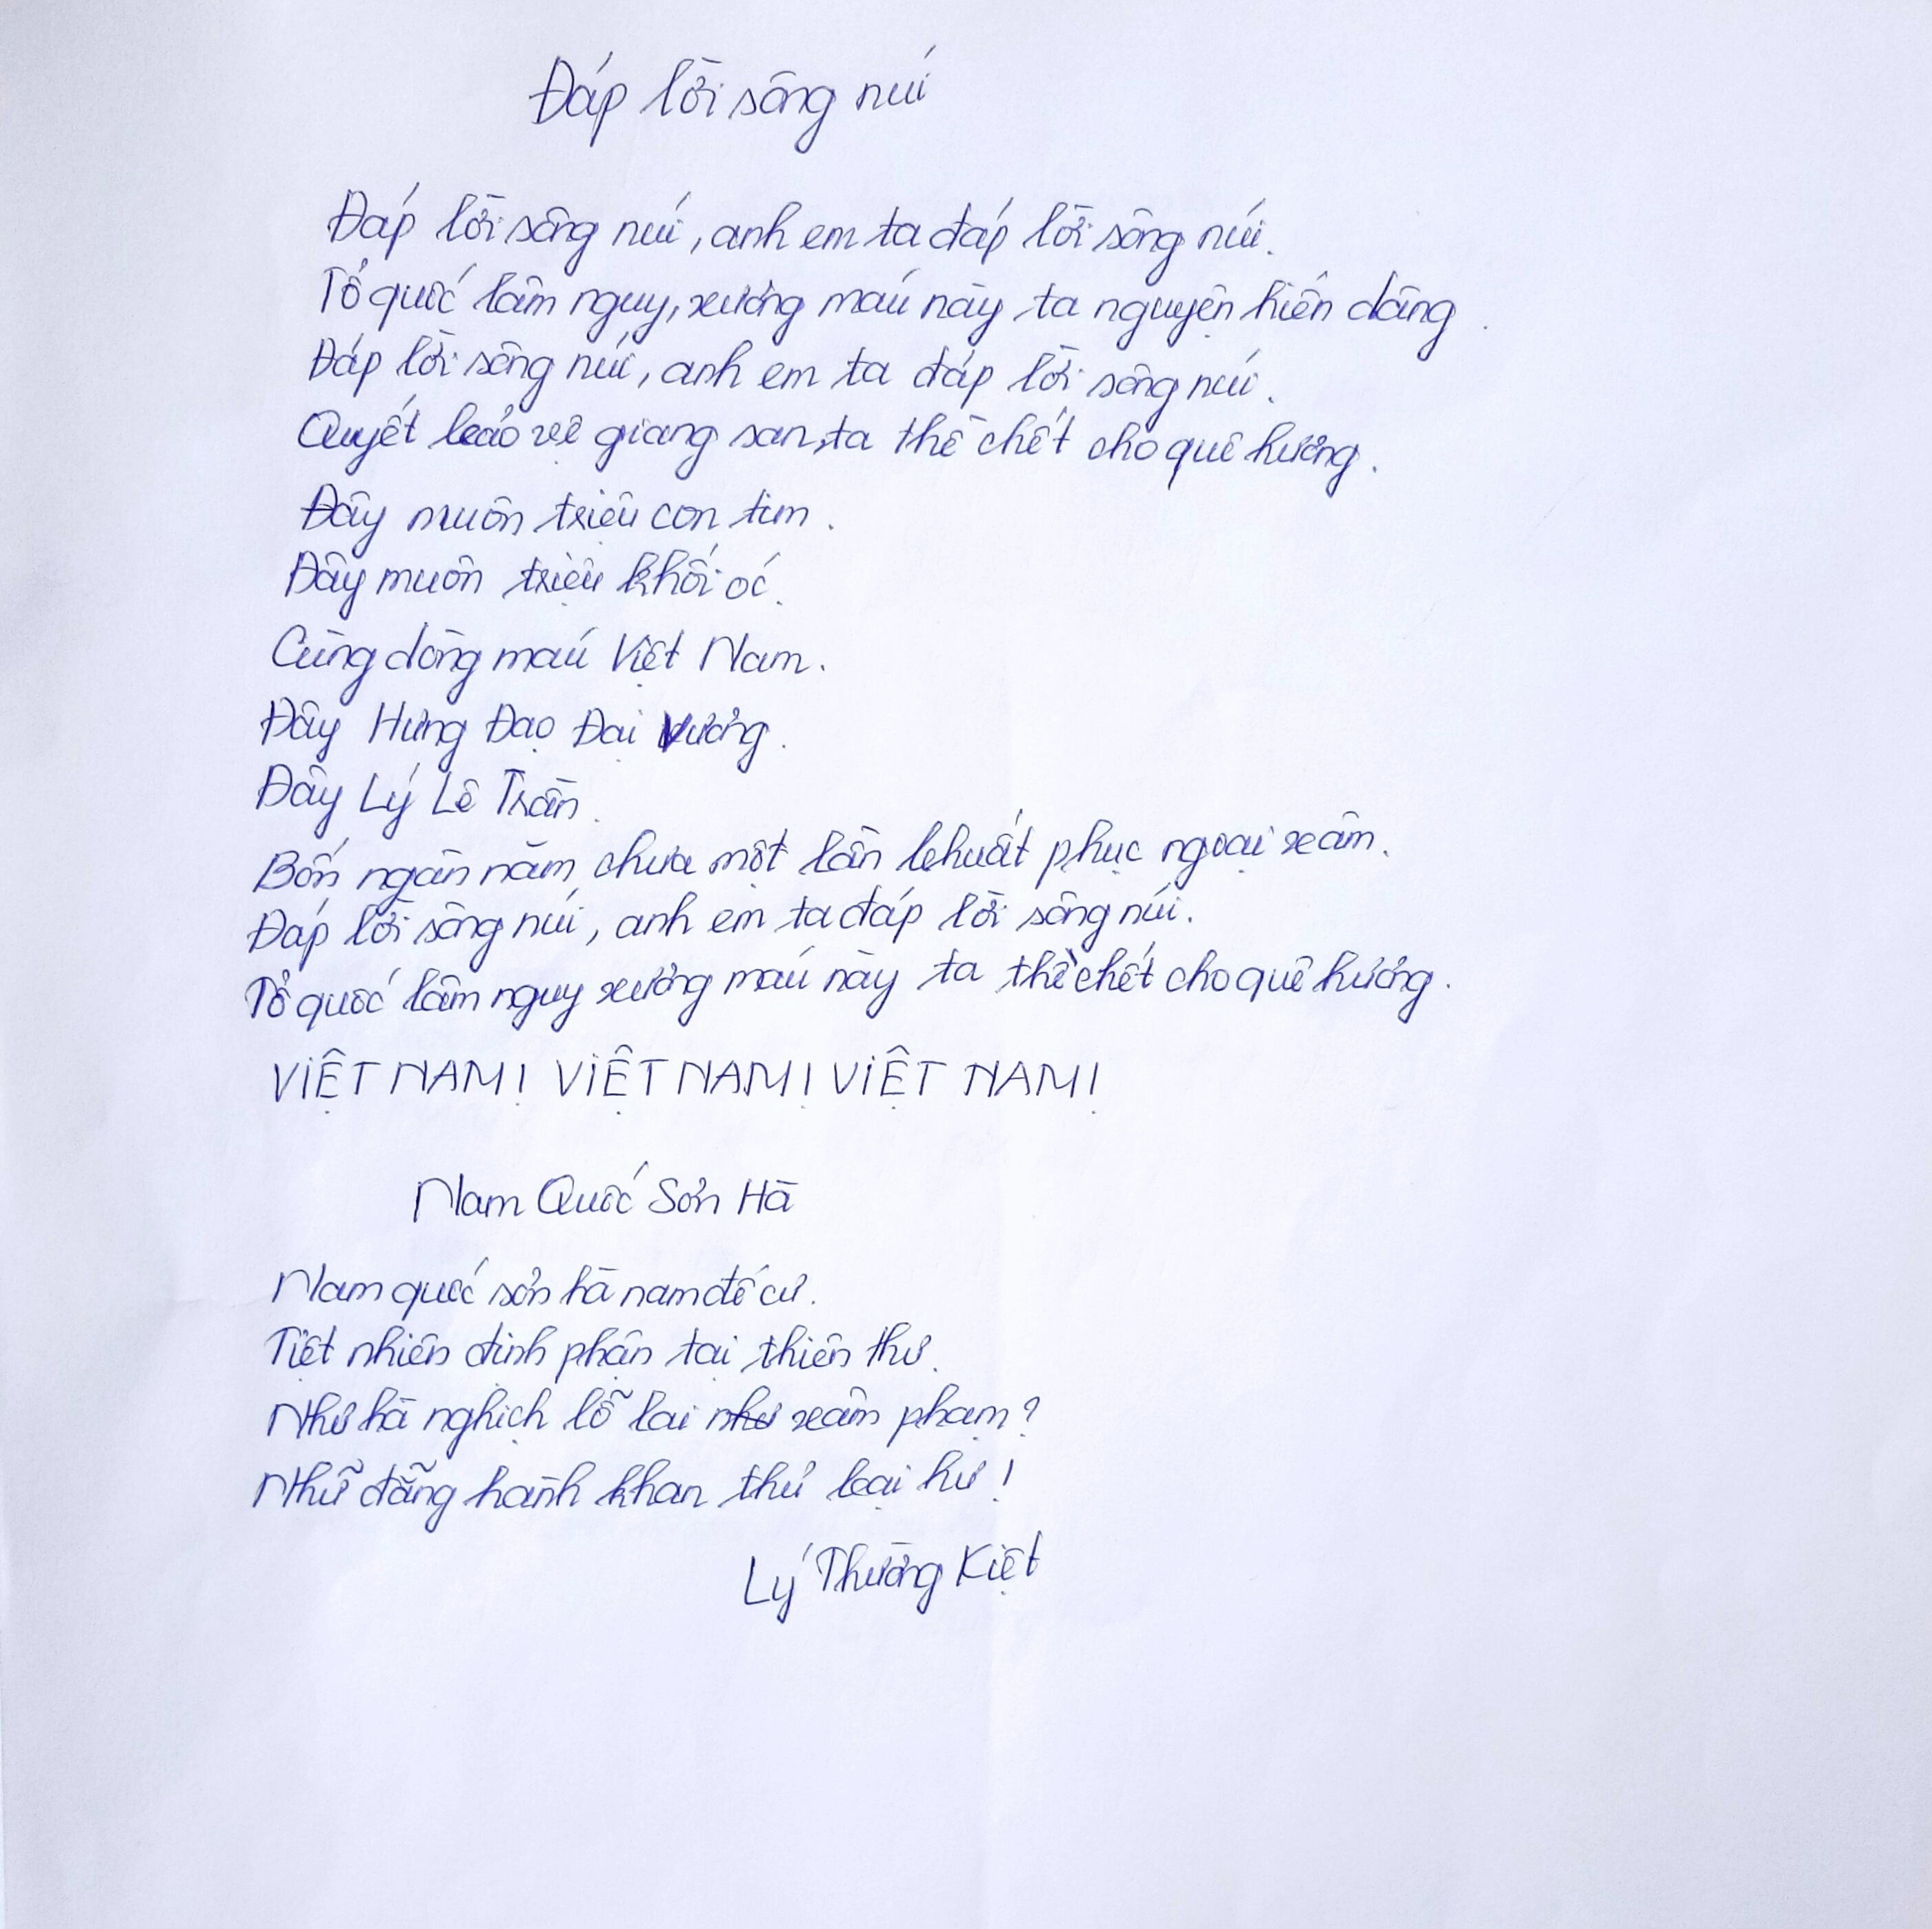 Đáp lời sông núi
Đáp lời sông núi, anh em ta đáp lời sông núi.
Tổ quốc lâm nguy, xương máu này ta nguyện hiến dâng.
Đáp lời sông núi, anh em ta đáp lời sông núi.
Quyết bảo vệ giang san, ta thề chết cho quê hương.
Đây muôn triệu con tim.
Đây muôn triệu khối óc.
Cùng dòng máu Việt Nam.
Đây Hưng Đạo Đại Vương.
Đây Lý Lê Trần.
Bốn ngàn năm chưa một lần khuất phục ngoại xâm.
Đáp lời sông núi, anh em ta đáp lời sông núi.
Tổ quốc lâm nguy xương máu này ta thề chết cho quê hương.
VIỆT NAM! VIỆT NAM! VIỆT NAM!
Nam Quốc Sơn Hà
Nam quốc sơn hà nam đế cư.
Tiệt nhiên định phận tại thiên thư.
Như hà nghịch lỗ lai xâm phạm?
Nhữ đẵng hành khan thủ loại hư!
Lý Thường Kiệt